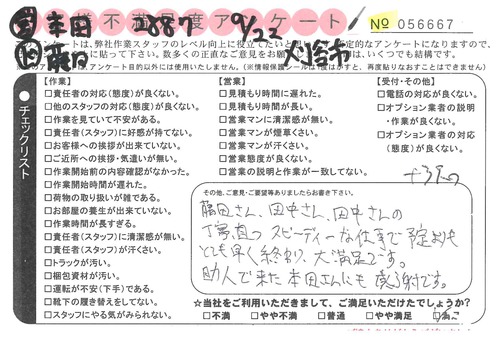 不満度アンケート
本田 2887 9/22
No 056667
刈谷市
アンケートは、弊社作業スタッフのレベル向上に役立てたいと
に貼って下さい。数多くの正直なご意見をお願い
はいくつでも結構です。
アンケート目的以外には使用いたしません。
チェックリスト
【作業】
□責任者の対応(態度)が良くない。
□他のスタッフの対応(態度)が良くない。
□作業を見ていて不安がある。
□責任者(スタッフ)に好感が持てない。
□お客様への挨拶が出来ていない。
□ご近所への挨拶・気遣いが無い。
□作業開始前の内容確認がなかった。
□作業開始時間が遅れた。
□荷物の取り扱いが雑である。
□お部屋の養生が出来ていない。
□作業時間が長すぎる。
□責任者(スタッフ)に清潔感が無い。
□責任者(スタッフ)が汗くさい。
□トラックが汚い。
□梱包資材が汚い。
□運転が不安(下手)である。
□靴下の履き替えをしてない。
□スタッフにやる気がみられない。
【営業】
□見積もり時間に遅れた。
□見積もり時間が長い。
□営業マンに清潔感が無い。
□営業マンが煙草くさい。
□営業マンが汗くさい。
□営業態度が良くない。
□営業の説明と作業が一致してない。
【受付・その他】
□電話の対応が良くない。
□オプション業者の説明
・作業が良くない。
□オプション業者の対応
(態度)が良くない。
その他、ご意見・ご要望等ありましたらお書き下さい。
藤田さん、田中さん、田中さんの
丁寧且つスピーディーな仕事で予定よりも
とても早く終わり、大満足です。
助人で来た本田さんにも感謝です。
☆当社をご利用いただきまして、ご満足いただけたでしょうか?
□不満 □やや不満 □普通 □やや満足